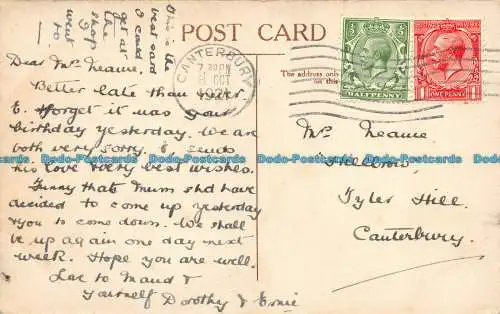 This is the
best card
I could
get at
the
shop
I
went
to
POST CARD
CANTERBURY
7.30 PM
OCT
1921
HALFPENNY
ONE PENNY
The address only
on this
Dear Mrs Neame,
Better late than never
E. forgot it was your
birthday yesterday. We are
both very sorry. E. sends
his love & very best wishes.
Funny that Mum shd have
decided to come up yesterday
& you to come down. We shall
be up again one day next
week. Hope you are well.
Love to Maud &
yourself Dorothy & Ernie
Mrs Neame
Tyler Hill.
Canterbury.
Docando-Postcards.com Docando-Postcards.com Docando-Postcards.com Docando-Postcards.com